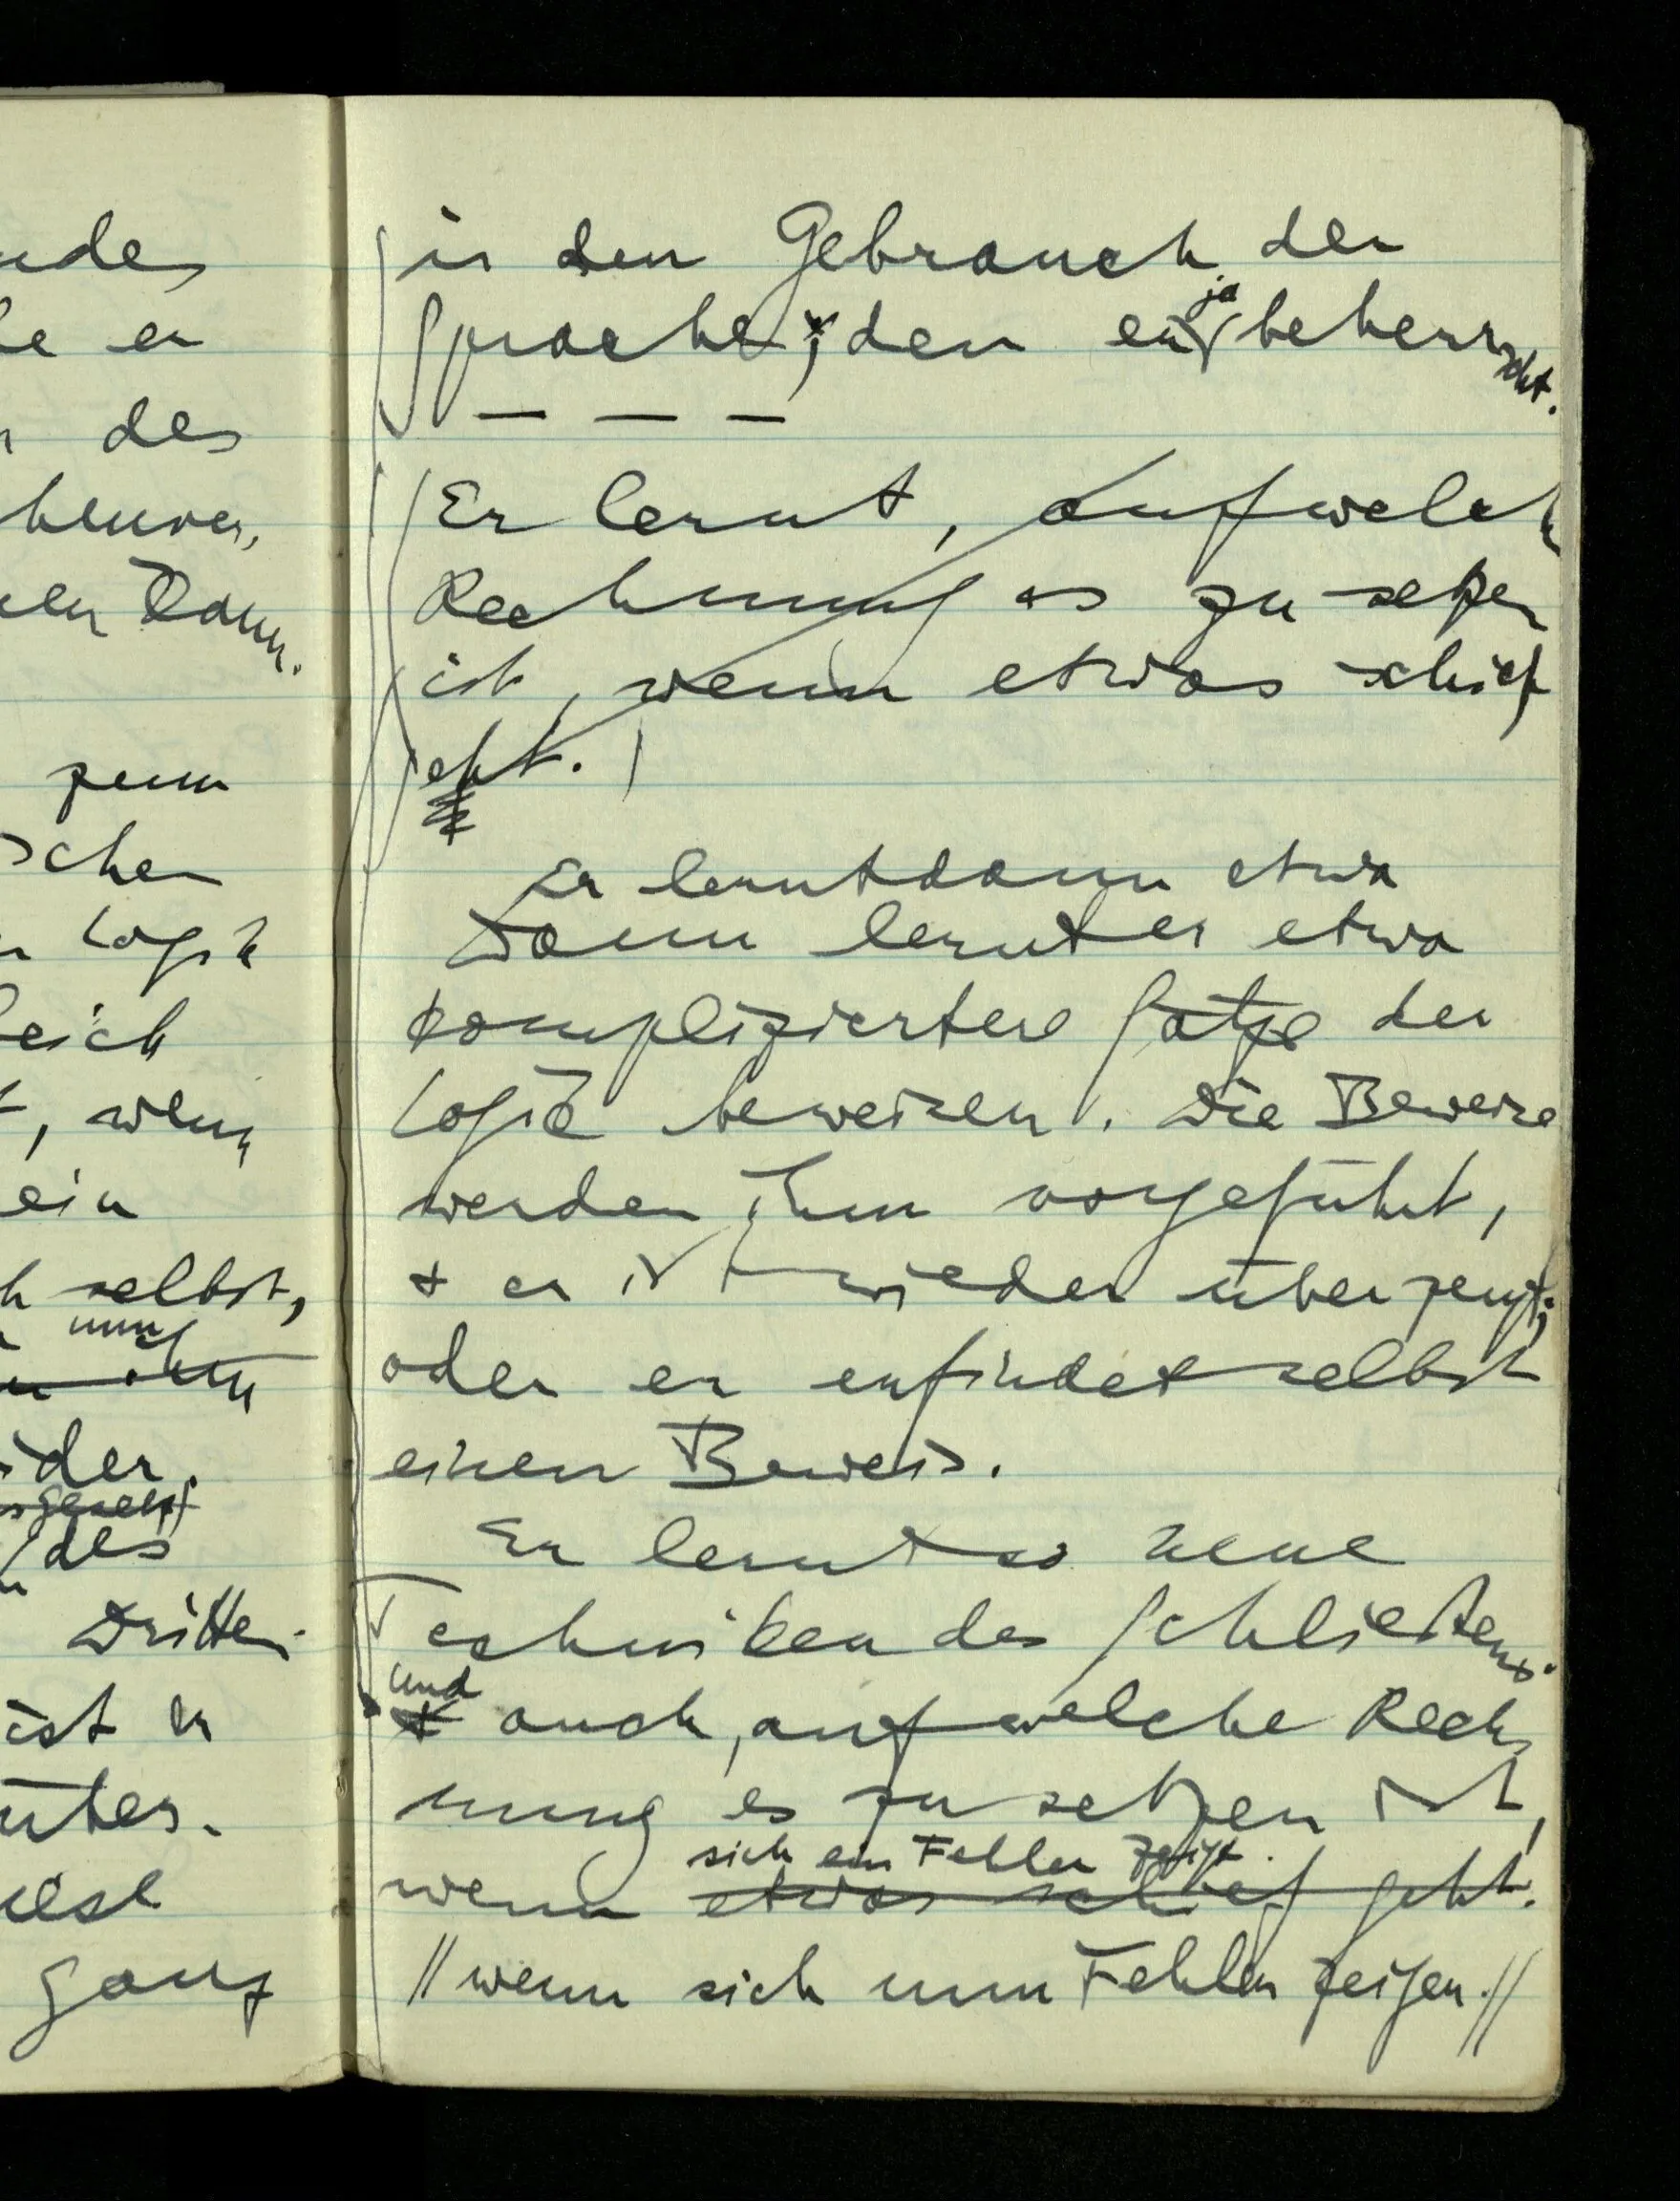 ndes
he er
des
keurer,
den Dann.
zum
schen
Logik
leich
, wenn
ein
h selbst,
nun
ider.
des
Dritten
ist er
über.
ganz
in den Gebrauch der
ja
Sprache, den er beherrscht.
– – –
Er lernt, auf welche
Rechnung es zu setzen
ist, wenn etwas schief
geht.
Er lernt dann etwa
Dann lernt er etwa
kompliziertere Sätze der
Logik beweisen. Die Beweise
werden ihm vorgeführt,
+ er ist wieder überzeugt;
oder er erfindet selbst
einen Beweis.
Er lernt so neue
Techniken des Schließens.
und
+ auch, auf welche Rech
nung es zu setzen ist,
sich ein Fehler zeigt.
wenn etwas schief geht.
// wenn sich nun Fehler zeigen. //